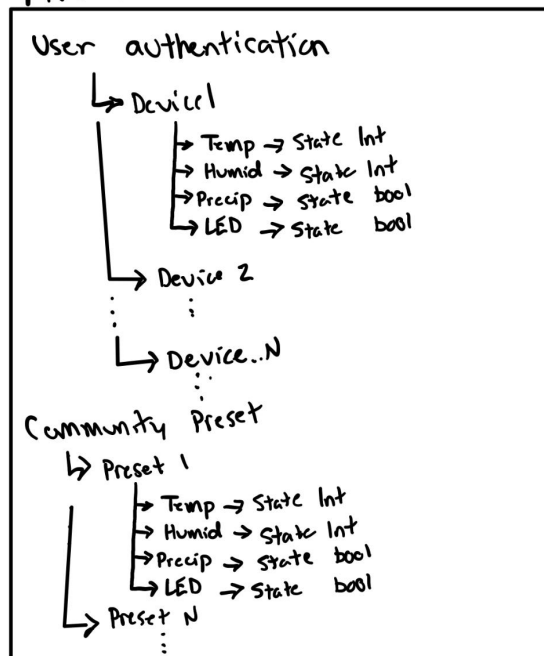 User authentication
↳ Device 1
→ Temp → State Int
→ Humid → State Int
→ Precip → State bool
→ LED → State bool
→ Device 2
⋮
→ Device..N
Community Preset
↳ Preset 1
→ Temp → State Int
→ Humid → State Int
→ Precip → State bool
→ LED → State bool
→ Preset N
⋮